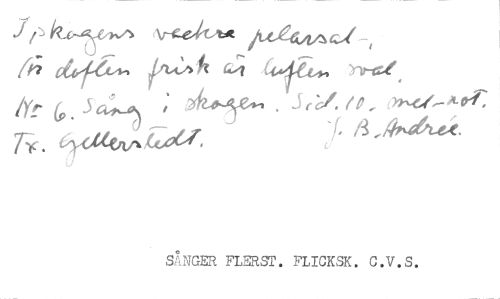 I skogens vackra pelarsal-,
är doften frisk är luften sval.
No 6. Sång i skogen. Sid. 10. mel-not.
Tx. Gellerstedt. f. B. Andrée.
SÅNGER FLERST. FLICKSK. C.V.S.